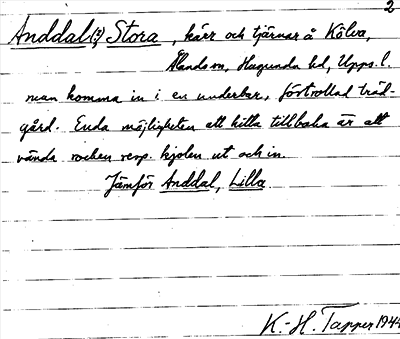 2
Anddal(?) Stora, kärr och tjärnar å Kölva,
Ålands sn, Hagunda hd, Upps. l.
man komma in i en underbar, förtrollad träd-
gård. Enda möjligheten att hitta tillbaka är att
vända rocken resp. kjolen ut och in.
Jämför Anddal, Lilla
K.-H. Tapper 1944